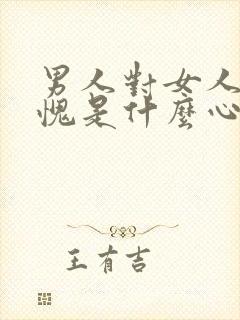 男人對女人
愧是什麼心
王有吉